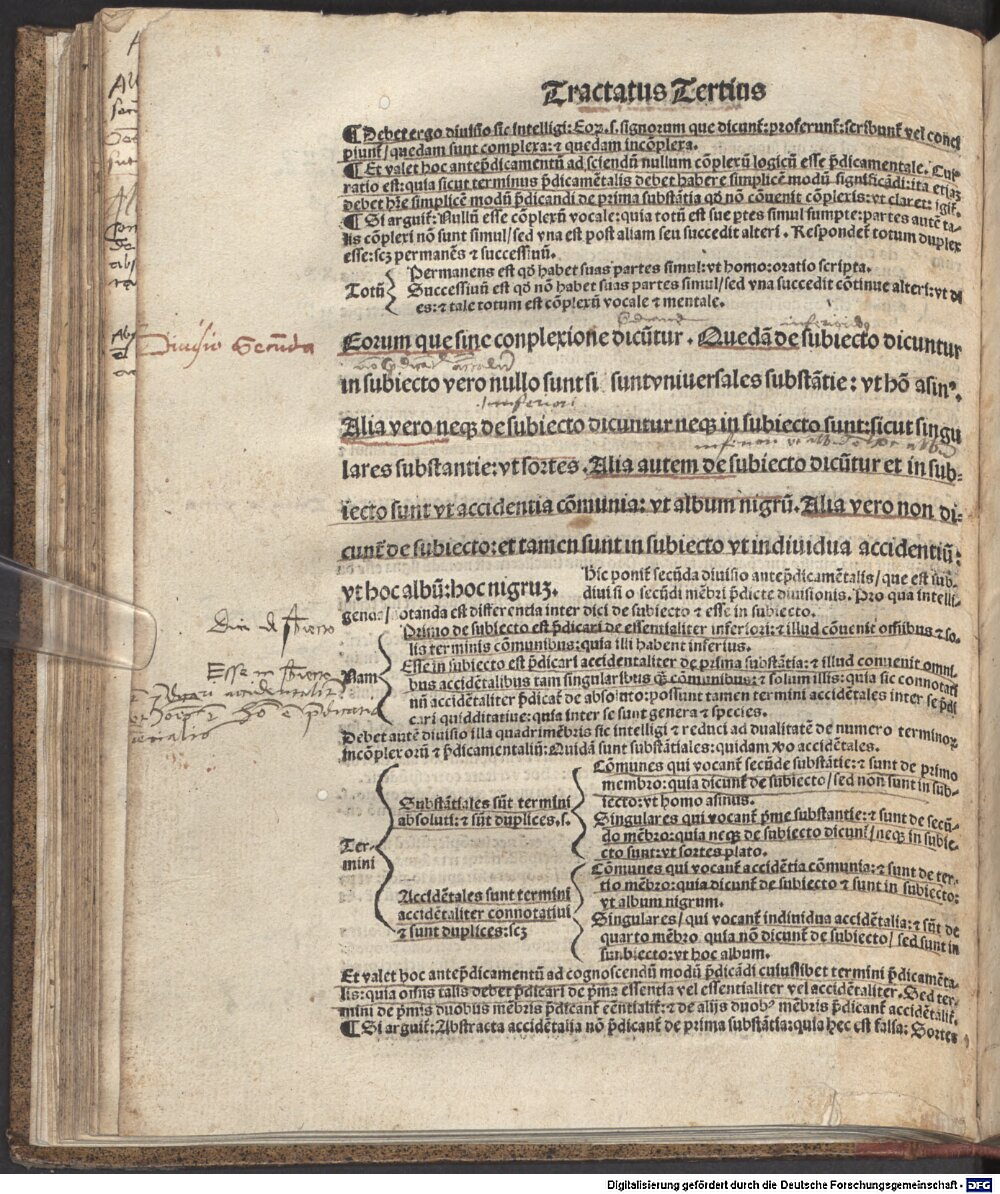 Tractatus Tertius
¶ Debet ergo diuisio sic intelligi: Eoꝝ .s. signorum que dicunt̃: proferunt̃: scribunt̃ vel conci
piunt̃ / quedam sunt complexa: ⁊ quedam incõplexa.
¶ Et valet hoc antep̃dicamentũ ad sciendũ nullum cõplexũ logicũ esse p̃dicamentale. Cuiꝰ
ratio est: quia sicut terminus p̃dicamẽtalis debet habere simplicẽ modũ significãdi: ita etiaꝫ
debet hr̃e simplicẽ modũ p̃dicandi de prima substãtia qõ nõ cõuenit cõplexis: vt claret: igit̃.
¶ Si arguit̃: Nullũ esse cõplexũ vocale: quia totũ est sue ptes simul sumpte: partes autẽ ta-
lis cõplexi nõ sunt simul / sed vna est post aliam seu succedit alteri. Respondet̃ totum duplex
esse: scꝫ permanẽs ⁊ successiuũ.
Totũ
Permanens est qõ habet suas partes simul: vt homo: oratio scripta.
Successiuũ est qõ nõ habet suas partes simul / sed vna succedit cõtinue alteri: vt di
es: ⁊ tale totum est cõplexũ vocale ⁊ mentale.
Diuisio Secũda
Eorum que sine conplexione dicũtur. Quedã de subiecto dicuntur
in subiecto vero nullo sunt si sunt vniuersales substãtie: vt hõ asinꝰ.
inferiori
Alia vero neqꝫ de subiecto dicuntur neqꝫ in subiecto sunt: sicut singu
lares substantie: vt sortes. Alia autem de subiecto dicũtur et in sub-
iecto sunt vt accidentia cõmunia: vt album nigrũ. Alia vero non di-
cunt̃ de subiecto: et tamen sunt in subiecto vt indiuidua accidentiũ:
vt hoc albũ: hoc nigruꝫ.
Hic ponit̃ secũda diuisio antep̃dicamẽtalis / que est sub-
diuisio secũdi mẽbri p̃dicte diuisionis. Pro qua intelli-
gentia / notanda est differentia inter dici de subiecto ⁊ esse in subiecto.
Nam
Primo de subiecto est p̃dicari de essentialiter inferiori: ⁊ illud cõuenit om̃ibus ⁊ so-
lis terminis cõmunibus: quia illi habent inferius.
Esse in subiecto est p̃dicari accidentaliter de prima substãtia: ⁊ illud conuenit omni-
bus accidẽtalibus tam singularibus q̃ꝫ cõmunibus: ⁊ solum illis: quia sic connotari
nũ accidẽtaliter p̃dicat̃ de absoluto: possunt tamen termini accidẽtales inter se p̃di
cari quidditatiue: quia inter se sunt genera ⁊ species.
Esse in
accidentalit̃
Debet autẽ diuisio illa quadrimẽbris sic intelligi ⁊ reduci ad dualitatẽ de numero terminoꝝ
incõplexorũ ⁊ p̃dicamentaliũ: Quidã sunt substãtiales: quidam ṽo accidẽtales.
Ter-
mini
Substãtiales sũt termini
absoluti: ⁊ sũt duplices. s.
Cõmunes qui vocant̃ secũde substãtie: ⁊ sunt de primo
membro: quia dicunt̃ de subiecto / sed non sunt in sub-
iecto: vt homo asinus.
Singulares qui vocant̃ p̃me substantie: ⁊ sunt de secũ-
do mẽbro: quia neqꝫ de subiecto dicunt̃ / neqꝫ in subie-
cto sunt: vt sortes plato.
Accidẽtales sunt termini
accidẽtaliter connotatiui
⁊ sunt duplices: scꝫ
Cõmunes qui vocant̃ accidẽtia cõmunia: ⁊ sunt de ter-
tio mẽbro: quia dicunt̃ de subiecto ⁊ sunt in subiecto:
vt album nigrum.
Singulares / qui vocant̃ indiuidua accidẽtalia: ⁊ sũt de
quarto mẽbro quia nõ dicunt̃ de subiecto / sed sunt in
subiecto: vt hoc album.
Et valet hoc antep̃dicamentũ ad cognoscendũ modũ p̃dicãdi cuiuslibet termini p̃dicamẽta-
lis: quia om̃is talis debet p̃dicari de p̃ma essentia vel essentialiter vel accidẽtaliter. Sed ter-
mini de p̃mis duobus mẽbris p̃dicant̃ cẽntialit̃: ⁊ de alijs duobꝰ mẽbris p̃dicant̃ accidẽtalit̃.
¶ Si arguit̃: Abstracta accidẽtalia nõ p̃dicant̃ de prima substãtia: quia hec est falsa: Sortes
Digitalisierung gefördert durch die Deutsche Forschungsgemeinschaft - DFG